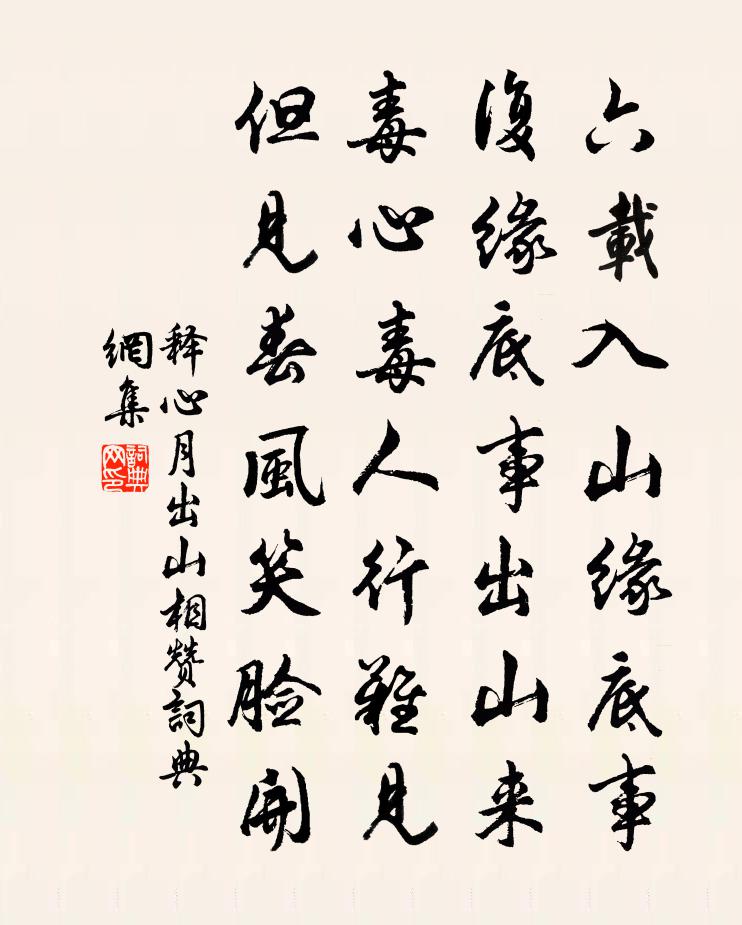 六載入山缘底事
復缘底事出山来
毒心毒人行難見
但見春風笑脸開
释心月出山相赞詞典
網集
詞典
网印